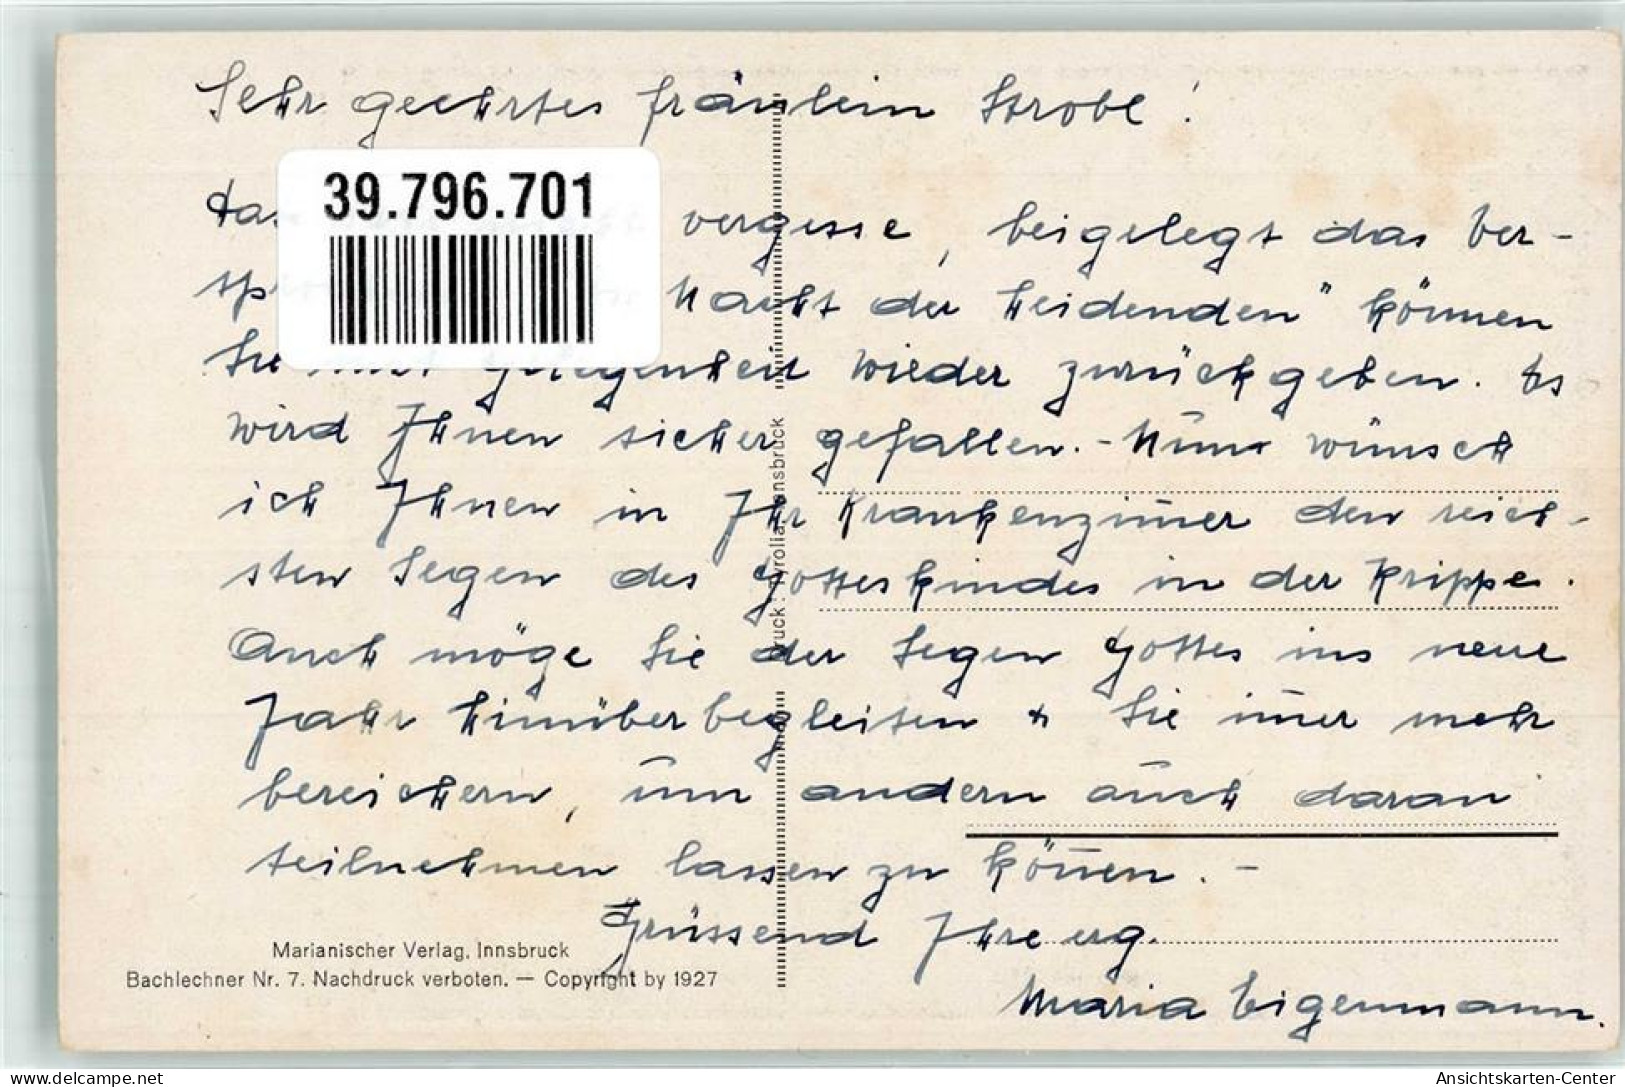 Sehr geehrtes Fräulein Strobl!
39.796.701
vergesse, beigelegt das Ver-
Macht der Leidenden" können
Sie mit Gelegenheit wieder zurückgeben. Es
wird Ihnen sicher gefallen. - Nun wünsch
ich Ihnen in Ihr Krankenzim̄er den reich-
sten Segen des Gotteskindes in der Krippe.
Auch möge Sie der Segen Gottes ins neue
Jahr hinüberbegleiten + Sie im̄er mehr
bereichern, um andern auch daran
teilnehmen lassen zu kön̄en. -
Grüssend Ihre erg.
Maria Eigenmann.
Druck: Tyrolia, Innsbruck
Marianischer Verlag, Innsbruck
Bachlechner Nr. 7. Nachdruck verboten. — Copyright by 1927
www.delcampe.net
Ansichtskarten-Center